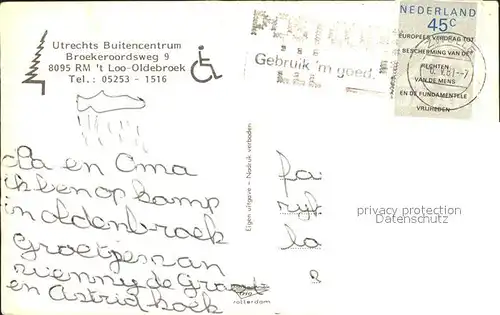 Utrechts Buitencentrum
Broekeroordsweg 9
8095 RM 't Loo-Oldebroek
Tel.: 05253 - 1516
Gebruik 'm goed.
NEDERLAND
45c
EUROPEES VERDRAG TOT
BESCHERMING VAN DE
RECHTEN
VAN DE MENS
EN DE FUNDAMENTELE
VRIJHEDEN
Pa en Oma
ik ben op kamp
in oldenbroek
Groetjes van
wienny de Groot
en Astrid hoek
Eigen uitgave - Nadruk verboden
rotterdam
fa
ryk
la
privacy protection
Datenschutz